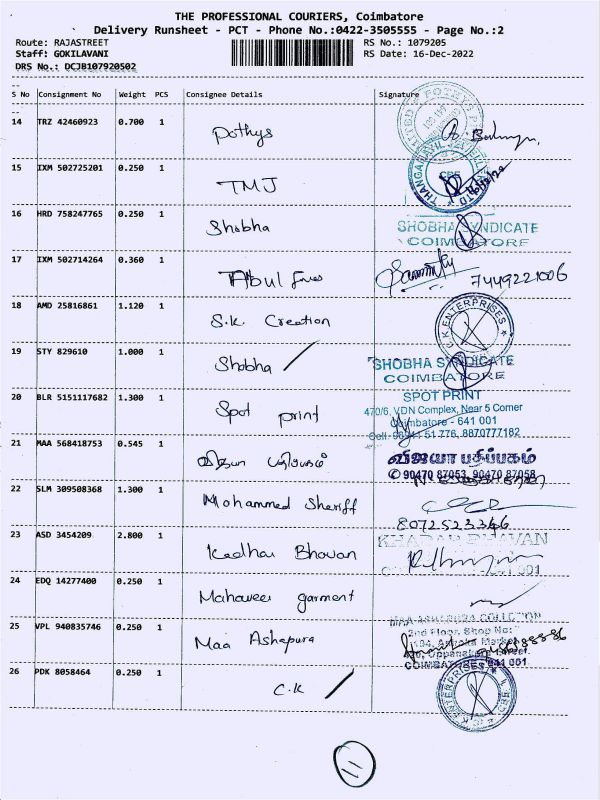 THE PROFESSIONAL COURIERS, Coimbatore
Delivery Runsheet - PCT - Phone No.:0422-3505555 - Page No.:2
Route: RAJASTREET RS No.: 1079205
Staff: GOKILAVANI RS Date: 16-Dec-2022
DRS No.: DCJB107920502
S No Consignment No Weight PCS Consignee Details Signature
14 TRZ 42460923 0.700 1 Pothys
15 IXM 502725201 0.250 1 TMJ
16 HRD 758247765 0.250 1 Shobha SHOBHA SYNDICATE
COIMBATORE
17 IXM 502714264 0.360 1 Abul 7449221006
18 AMD 25816861 1.120 1 S.K. Creation C.K ENTERPRISES
19 STY 829610 1.000 1 Shobha SHOBHA SYNDICATE
COIMBATORE
20 BLR 5151117682 1.300 1 Spot print SPOT PRINT
470/6, VDN Complex, Near 5 Corner
Coimbatore - 641 001
Cell: 51 776, 8870777182
21 MAA 568418753 0.545 1 விஜயா பதிப்பகம் விஜயா பதிப்பகம்
90470 87053, 90470 87058
22 SLM 309508368 1.300 1 Mohammed Sheriff
8072523346
23 ASD 3454209 2.800 1 Kadhar Bhavan KHADAR BHAVAN
001
24 EDQ 14277400 0.250 1 Mahaveer garment
25 VPL 940835746 0.250 1 Maa Ashapura MAA ASHAPURA COLLECTION
2nd Floor, Shop No:
COIMBATORE 641 001
26 PDK 8058464 0.250 1 C.K ENTERPRISES
11